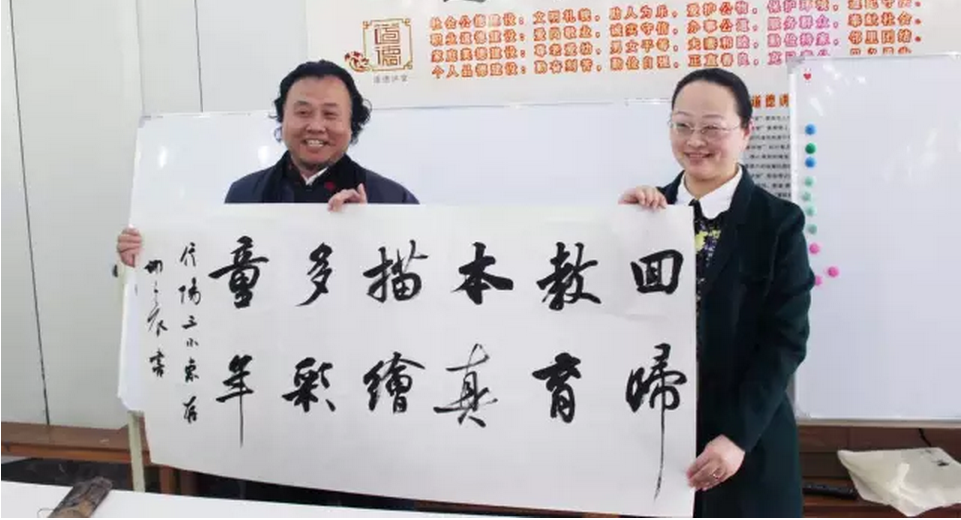 道德
道德讲堂
社会公德建设：文明礼貌，助人为乐，爱护公物，保护环境，遵纪守法。
职业道德建设：爱岗敬业，诚实守信，办事公道，服务群众，奉献社会。
家庭美德建设：尊老爱幼，男女平等，夫妻和睦，勤俭持家，邻里团结。
个人品德建设：勤奋刻苦，勤俭自强，正直善良，
道德
回歸
教育
本真
描繪
多彩
童年
信陽三小
書